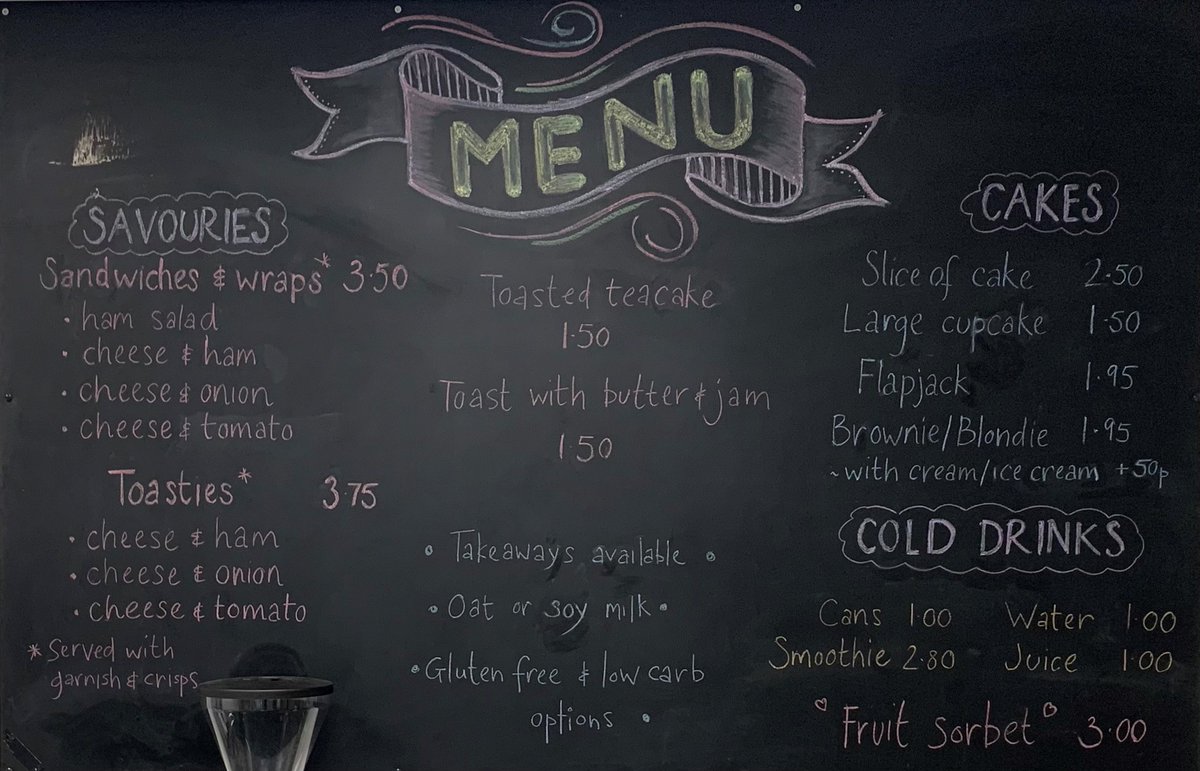 MENU
SAVOURIES
Sandwiches & wraps* 3·50
· ham salad
· cheese & ham
· cheese & onion
· cheese & tomato
Toasties* 3·75
· cheese & ham
· cheese & onion
· cheese & tomato
* Served with
garnish & crisps
Toasted teacake
1·50
Toast with butter & jam
1·50
• Takeaways available •
• Oat or soy milk •
• Gluten free & low carb
options •
CAKES
Slice of cake 2·50
Large cupcake 1·50
Flapjack 1·95
Brownie/Blondie 1·95
~with cream/ice cream +50p
COLD DRINKS
Cans 1·00 Water 1·00
Smoothie 2·80 Juice 1·00
♡ Fruit Sorbet ♡ 3·00